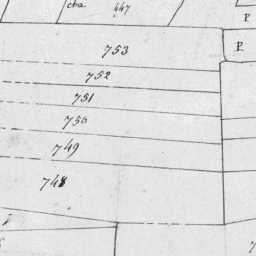 cha 447
P.
753
P.
752
751
750
749
748